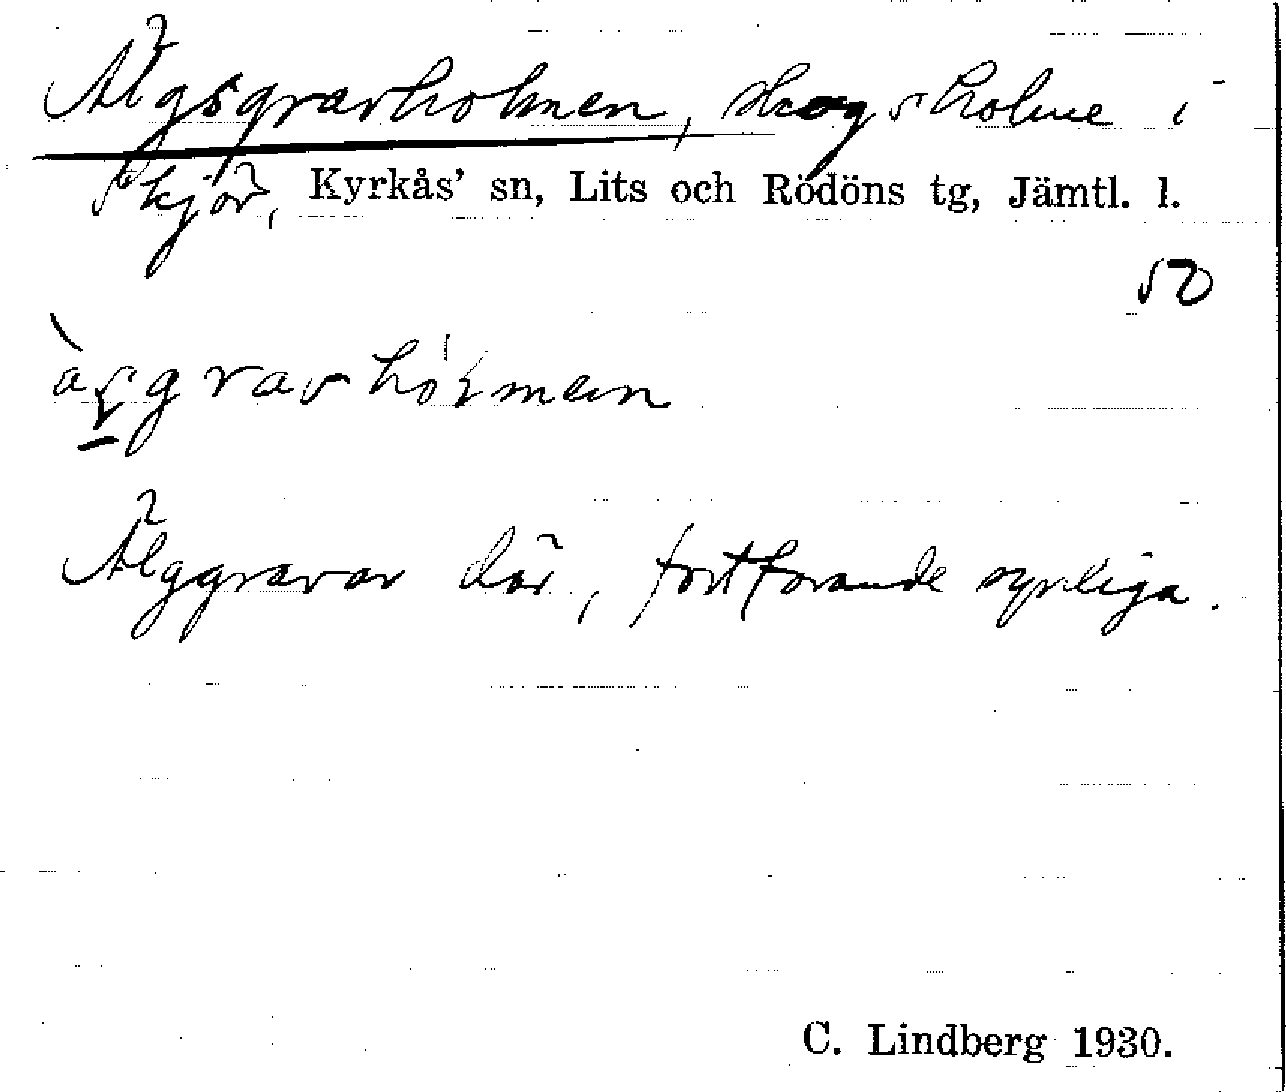 Älgsgravholmen, skogsholme i
Skjör, Kyrkås' sn, Lits och Rödöns tg, Jämtl. l.
50
Älggravar där, fortfarande synliga.
C. Lindberg 1930.